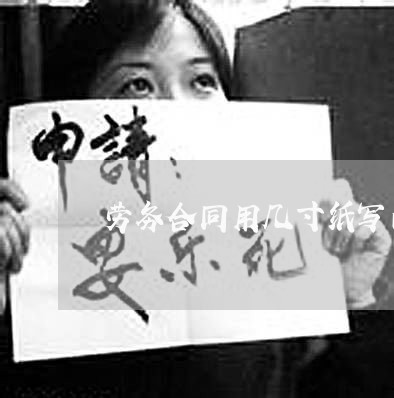 申請：
劳务合同用几寸纸写
安乐死